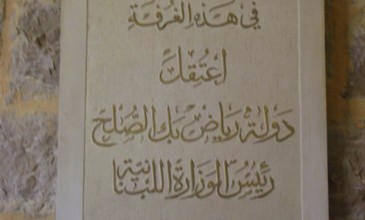 في هذه الغرفة
اعتقل
دولة رياض بك الصلح
رئيس الوزارة اللبنانية